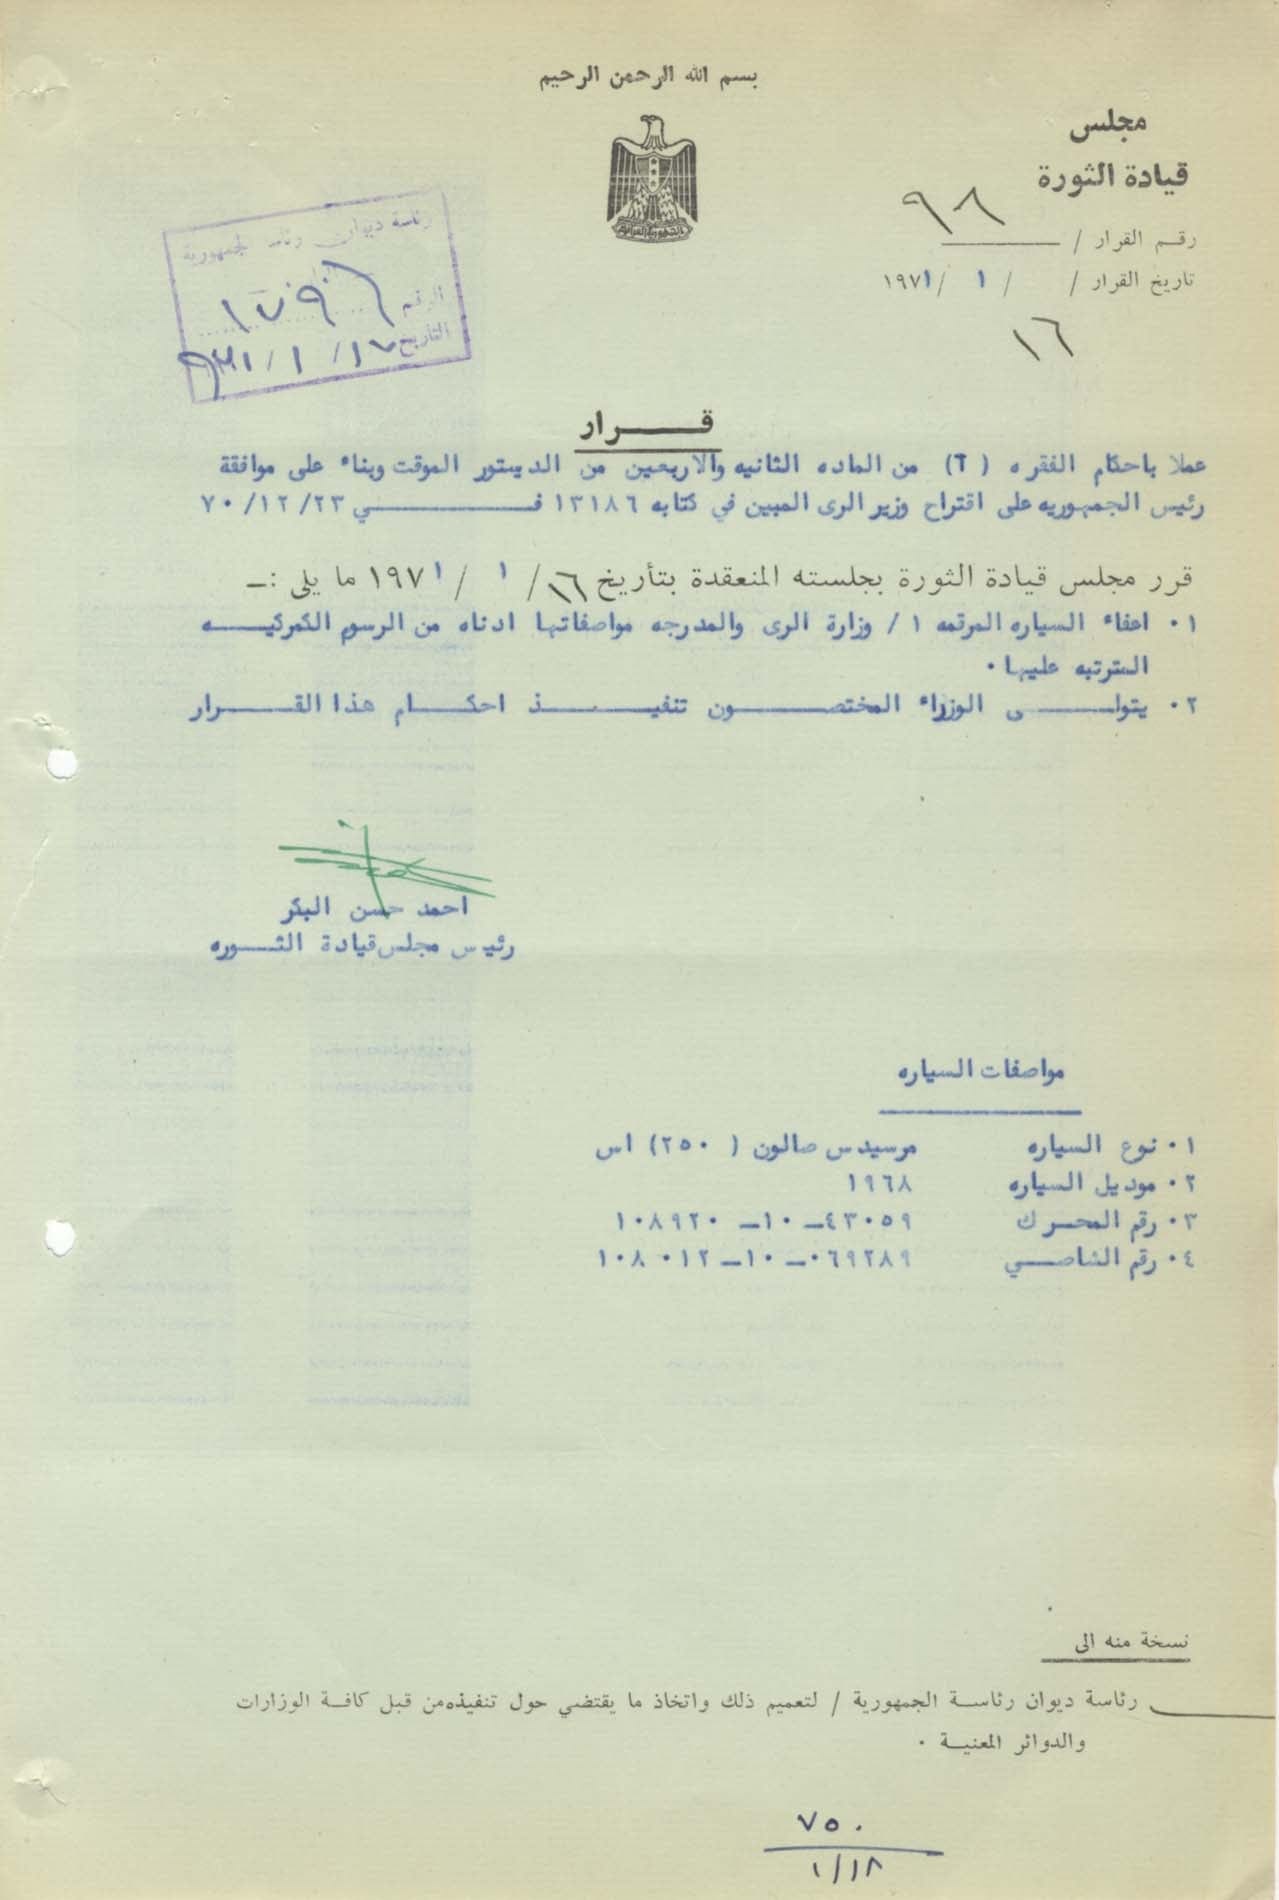 بسم الله الرحمن الرحيم
مجلس
قيادة الثورة
رقم القرار / ٩٨
تاريخ القرار / ١٦ / ١ / ١٩٧١
رئاسة ديوان رئاسة الجمهورية
الرقم
التاريخ ١٧ / ١ / ٩٧١
قـــرار
عملا باحكام الفقره (آ) من الماده الثانيه والاربعين من الدستور الموقت وبناء على موافقة
رئيس الجمهوريه على اقتراح وزير الرى المبين في كتابه ١٣١٨٦ فـــي ٧٠/١٢/٢٣
قرر مجلس قيادة الثورة بجلسته المنعقدة بتأريخ ١٦ / ١ / ١٩٧١ ما يلي :ـ
١٠ اعفاء السياره المرقمه ١ / وزارة الرى والمدرجه مواصفاتها ادناه من الرسوم الكمركيـــه
المترتبه عليها ٠
٢٠ يتولـــى الوزراء المختصـــون تنفيـــذ احكـــام هذا القـــرار
احمد حسن البكر
رئيس مجلس قيادة الثـــوره
مواصفات السياره
١٠ نوع السياره مرسيدس صالون (٢٥٠) اس
٢٠ موديل السياره ١٩٦٨
٣٠ رقم المحرك ١٠٨٩٢٠ ــ ١٠ ــ ٤٣٠٥٩
٤٠ رقم الشاصـــي ١٠٨٠١٢ ــ ١٠ ــ ٠٦٩٢٨٩
نسخة منه الى
رئاسة ديوان رئاسة الجمهورية / لتعميم ذلك واتخاذ ما يقتضي حول تنفيذه من قبل كافة الوزارات
والدوائر المعنية ٠
٧٥٠
١/١٨